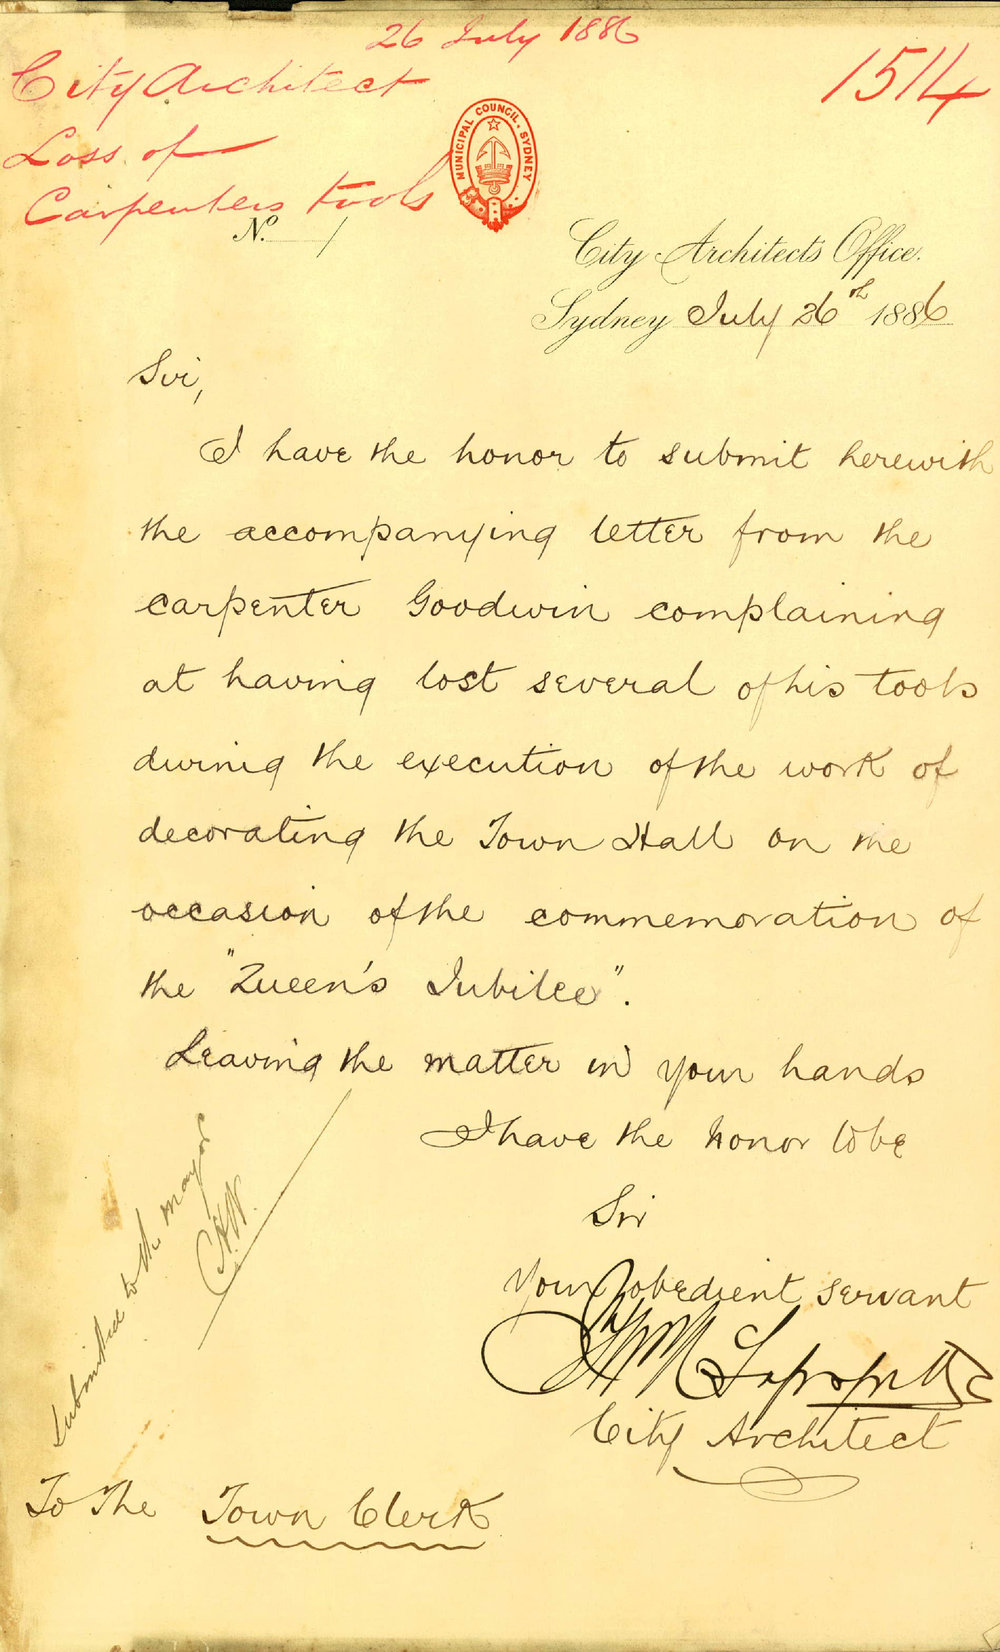 26 July 1886
City Architect
1514
Loss of
Carpenters tools
MUNICIPAL COUNCIL. SYDNEY
No. 1
City Architect's Office.
Sydney July 26th 1886
Sir,
I have the honor to submit herewith
the accompanying letter from the
carpenter Goodwin complaining
at having lost several of his tools
during the execution of the work of
decorating the Town Hall on the
occasion of the commemoration of
the "Queen's Jubilee".
Leaving the matter in your hands
I have the honor to be
Sir
Your obedient servant
City Architect
Submitted to the mayor
C.H.W.
To The Town Clerk